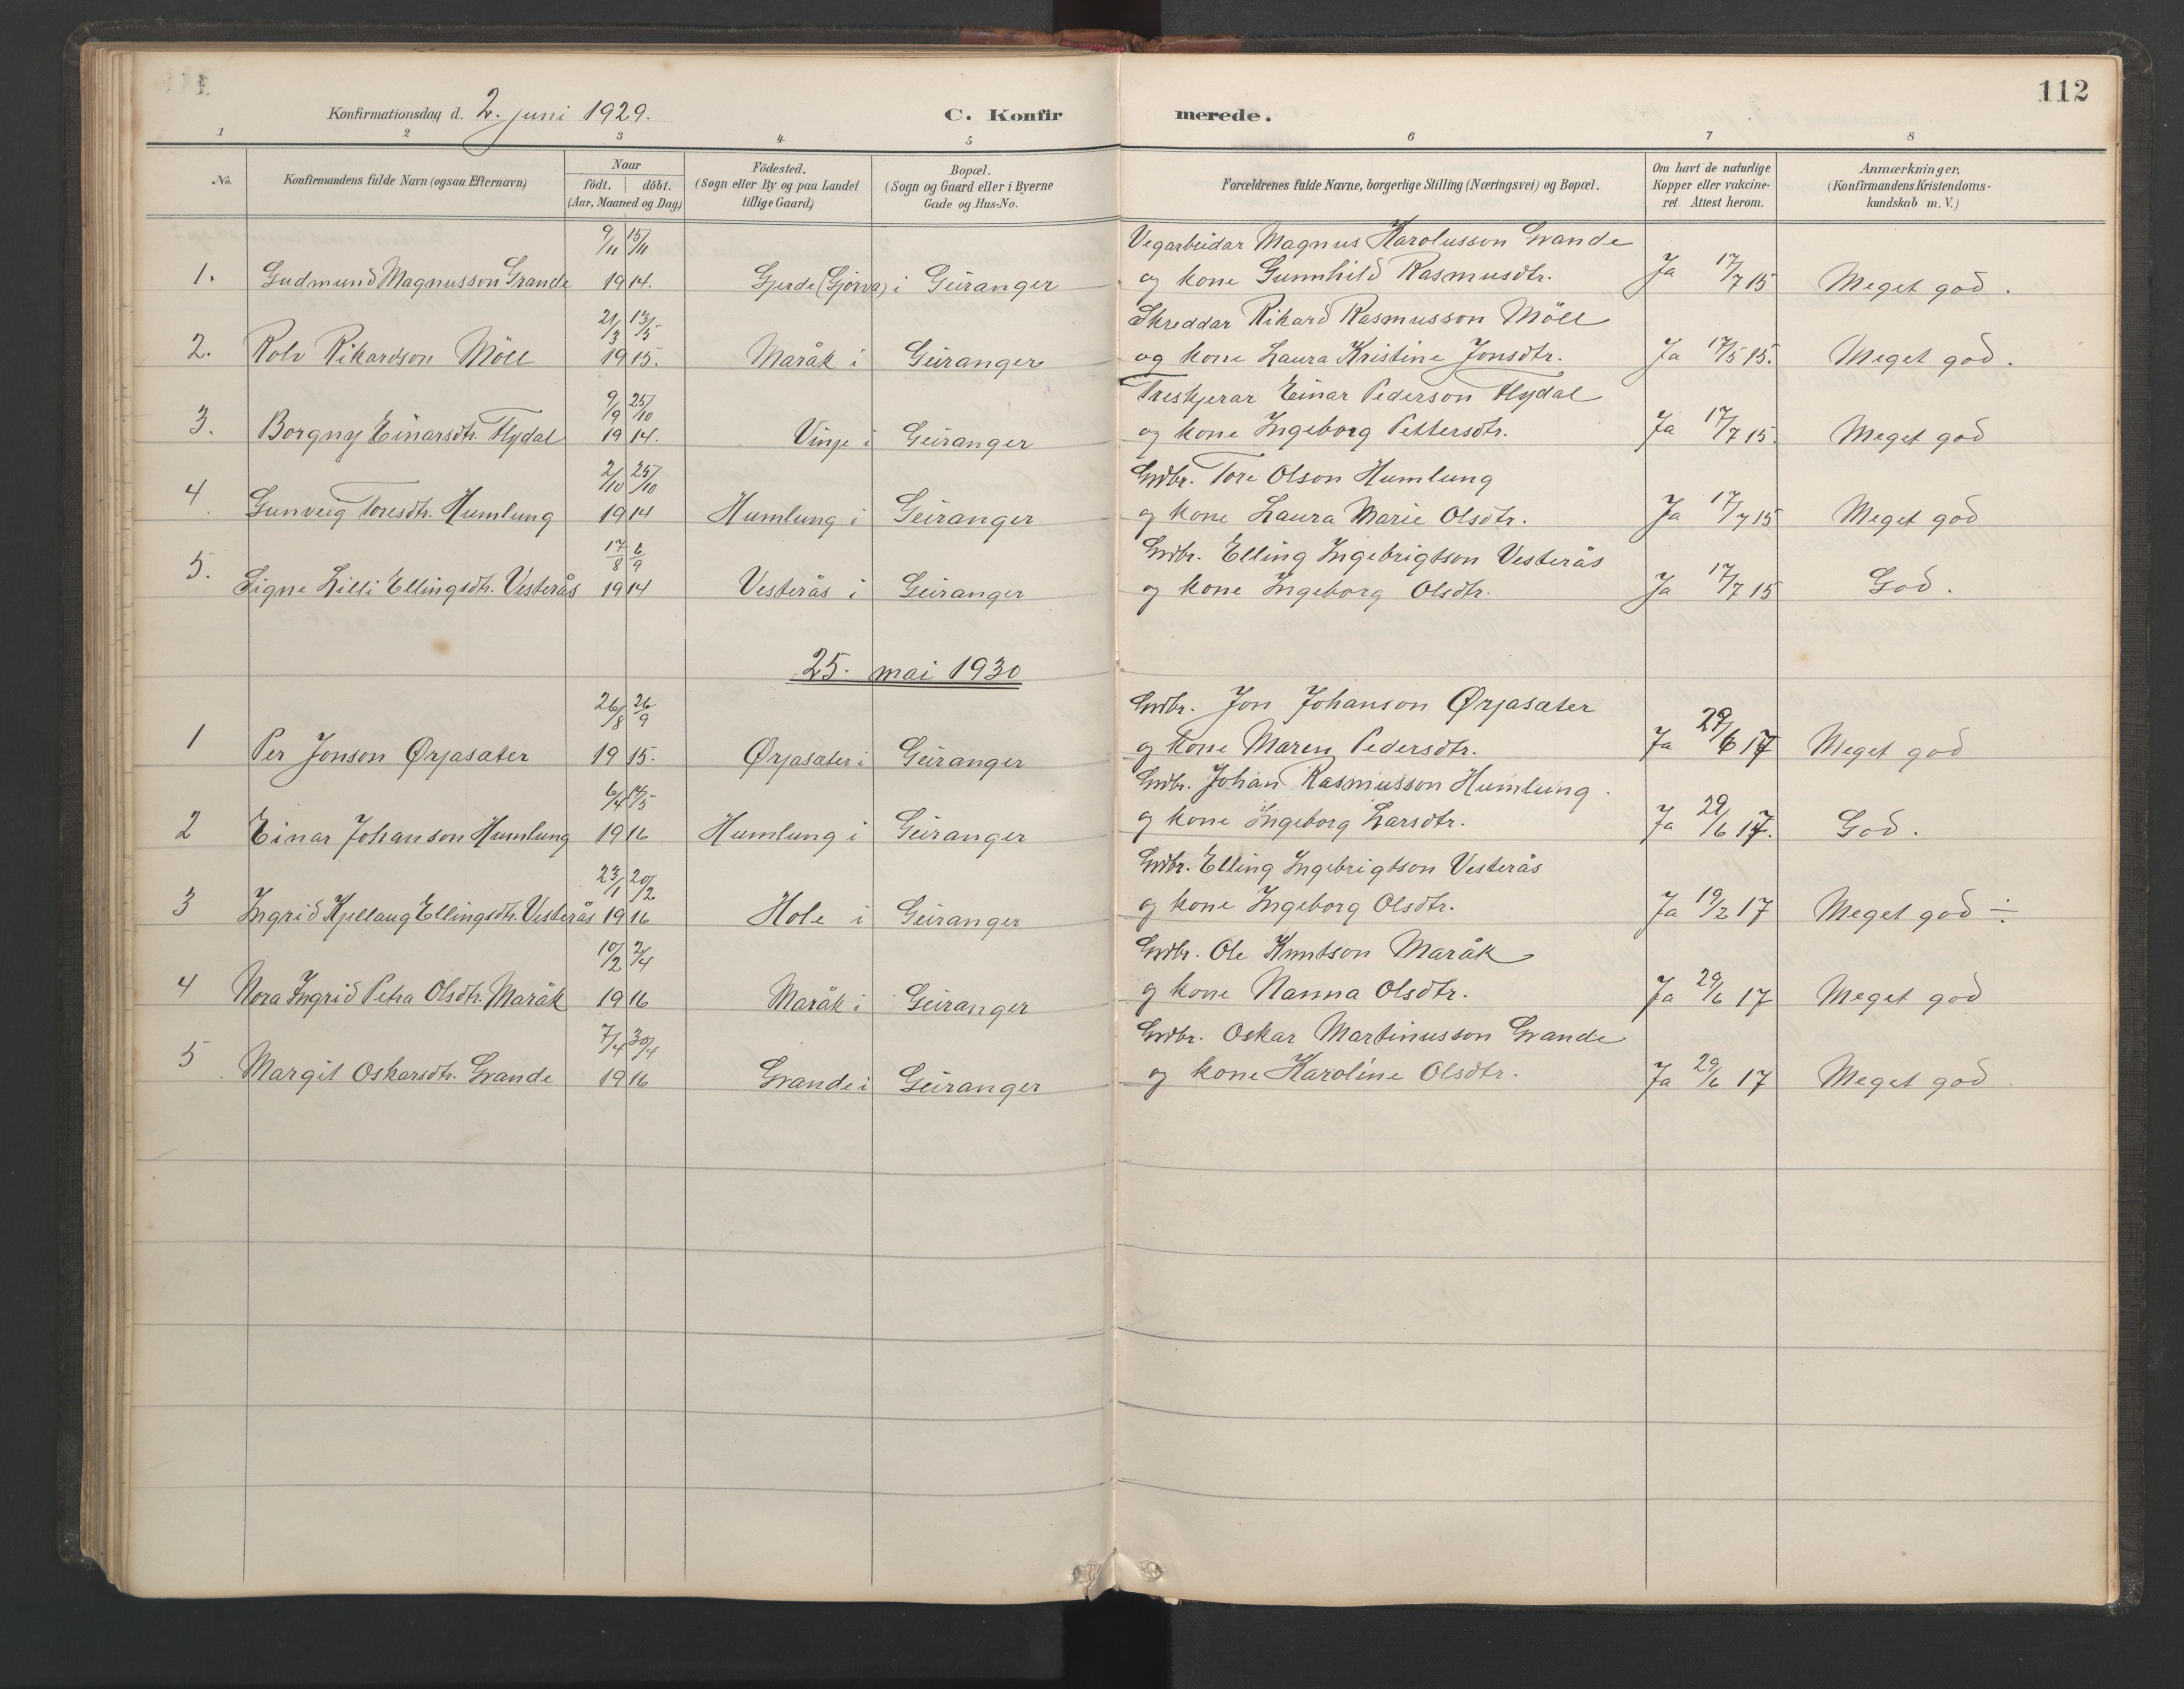 112
Konfirmationsdag d. 2. juni 1929. C. Konfirmerede.
1 2 3 4 5 6 7 8
No. Konfirmandens fulde Navn (ogsaa Efternavn) Naar födt. döbt. (Aar, Maaned og Dag) Födested. (Sogn eller By og paa Landet tillige Gaard) Bopæl. (Sogn og Gaard eller i Byerne Gade og Hus-No. Forældrenes fulde Navne, borgerlige Stilling (Næringsvei) og Bopæl. Om havt de naturlige Kopper eller vakcineret. Attest herom. Anmærkninger. (Konfirmandens Kristendomskundskab m. V.)
9/11 15/11 Vegarbeidar Magnus Karolusson Grande
1. Gudmund Magnusson Grande 19 14. Gjerde (Gjörva) i Geiranger og kone Gunnhild Rasmusdtr. Ja 17/7 15 Meget god.
21/3 13/5 Skreddar Rikard Rasmusson Möll
2. Rolv Rikardson Möll 19 15. Maråk i Geiranger og kone Laura Kristine Jonsdtr. Ja 17/5 15. Meget god.
9/9 25/10 Treskjerar Einar Pederson Flydal
3. Borgny Einarsdtr. Flydal 19 14. Vinje i Geiranger og kone Ingeborg Pettersdtr. Ja 17/7 15. Meget god
2/10 25/10 Grdbr. Tore Olson Humlung
4. Gunveig Toresdtr. Humlung 19 14 Humlung i Geiranger og kone Laura Marie Olsdtr. Ja 17/7 15 Meget god
17/8 6/9 Grdbr. Elling Ingebrigtson Vesterås
5. Signe Lilli Ellingsdtr. Vesterås 19 14 Vesterås i Geiranger og kone Ingeborg Olsdtr. Ja 17/7 15 God.
25. mai 1930
26/8 26/9 Grdbr. Jon Johanson Ørjasæter
1 Per Jonson Ørjasæter 19 15. Ørjasæter i Geiranger og kone Maren Pedersdtr. Ja 29/6 17 Meget god
6/4 Grdbr. Johan Rasmusson Humlung.
2 Einar Johanson Humlung 19 16 Humlung i Geiranger og kone Ingeborg Larsdtr. Ja 29/6 17. God.
23/1 20/2 Grdbr. Elling Ingebrigtson Vesterås
3 Ingrid Kjellaug Ellingsdtr. Vesterås 19 16 Hole i Geiranger og kone Ingeborg Olsdtr. Ja 19/2 17 Meget god ÷
10/2 2/4 Grdbr. Ole Knutson Maråk
4 Nora Ingrid Petra Olsdtr. Maråk 19 16 Maråk i Geiranger og kone Nanna Olsdtr. Ja 29/6 17 Meget god
7/4 30/4 Grdbr. Oskar Martinusson Grande
5 Margit Oskarsdtr. Grande 19 16 Grande i Geiranger og kone Karoline Olsdtr. Ja 29/6 17 Meget god